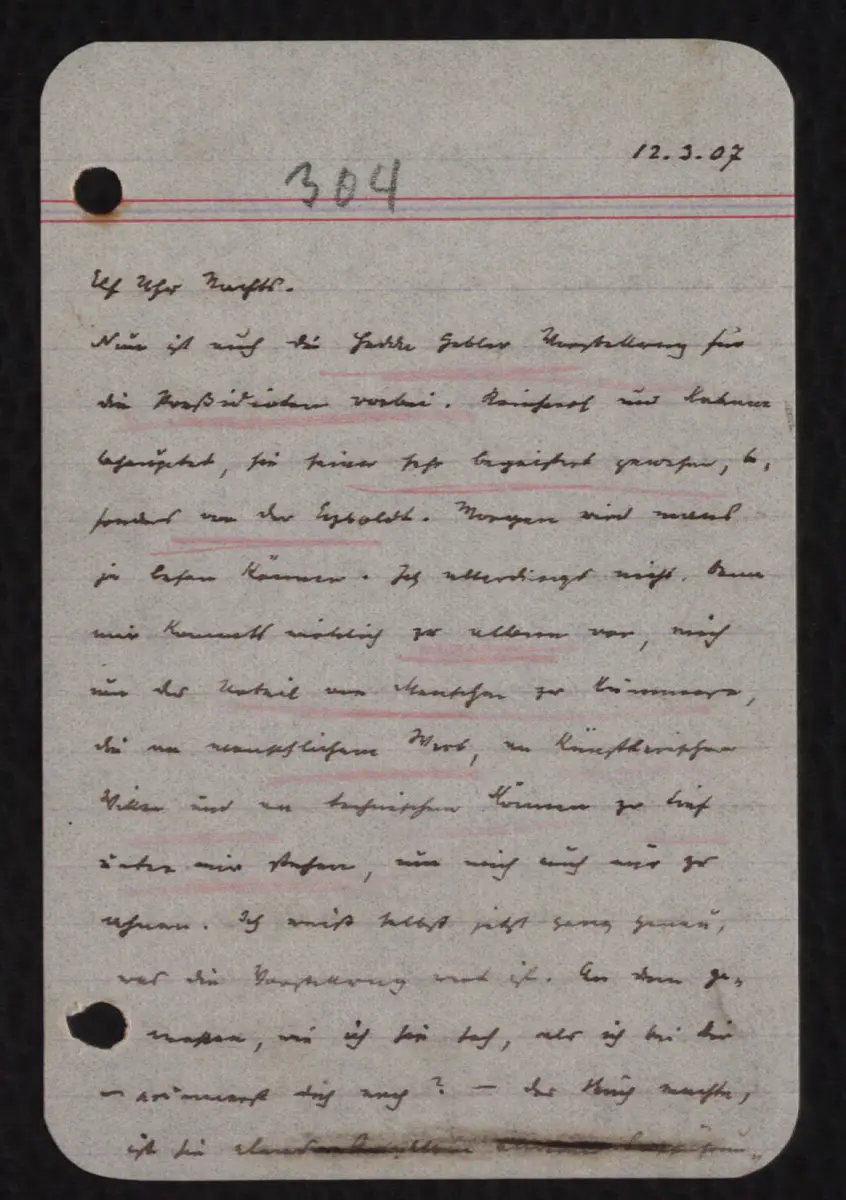 12.3.07
304
Elf Uhr Nachts.
Nun ist auch die Hedda Gabler Vorstellung für
die Preßidioten vorbei. Reinhard und Kahane
behauptet, sie seien sehr begeistert gewesen, be-
sonders von der Eysoldt. Morgen wird mans
ja lesen können. Ich allerdings nicht. Denn
mir kommts wirklich zu albern vor, mich
um das Urteil von Menschen zu kümmern,
die an menschlichem Wert, an künstlerischem
Willen und an technischem Können zu tief
unter mir stehen, um mich auch nur zu
ahnen. Ich weiß selbst jetzt ganz genau,
was die Vorstellung wert ist. An dem ge-
messen, wie ich sie sah, als ich bei Dir
– erinnerst dich noch? – das Buch machte,
ist sie